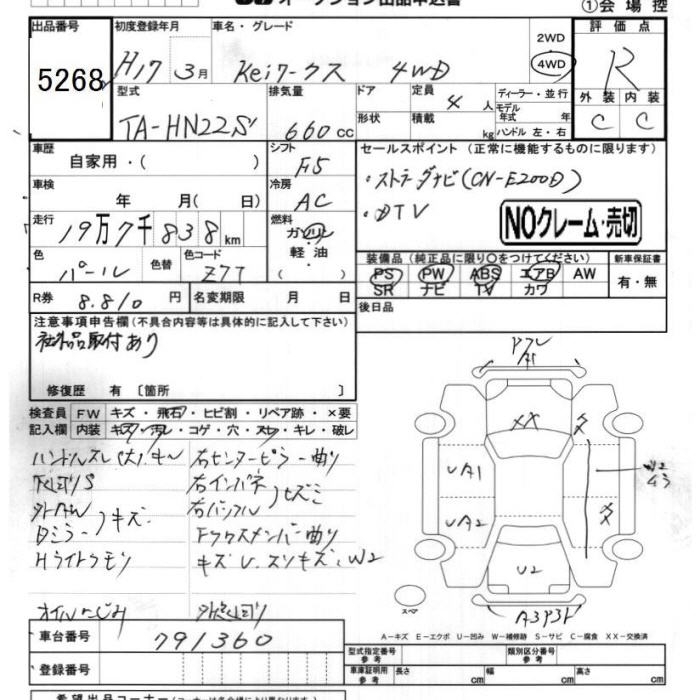 オークション出品申込書
①会場控
出品番号
5268
初度登録年月
H17 3月
車名・グレード
Keiワークス 4WD
2WD
4WD
評価点
R
外装 内装
C C
型式
TA-HN22S
排気量
660cc
ドア
形状
定員
4人
積載
kg
ディーラー・並行
モデル年式 年
ハンドル 左・右
車歴
自家用・( )
シフト
F5
セールスポイント (正常に機能するものに限ります)
・ストラーダナビ(CN-E200D)
・DTV
NOクレーム・売切
車検
年 月( 日)
冷房
AC
走行
19万7千838km
燃料
ガソリン
・
軽油
色
パール
色替
色コード
Z7T
装備品(純正品に限り○をつけてください)
PS PW ABS エアB AW
SR ナビ TV カワ
新車保証書
有・無
R券
8.810円
名変期限 月 日
後日品
注意事項申告欄(不具合内容等は具体的に記入して下さい)
社外品取付あり
修復歴 有〔箇所 〕
検査員記入欄
FW キズ・飛石・ヒビ割・リペア跡・×要
内装 キズ・汚レ・コゲ・穴・スレ・キレ・破レ
ハンドルスレ
右センターピラー曲り
下回りS
右インパネ
外AW
Dミラー
キズ
Fクロスメンバー曲り
HライトクモリV
キズ U.スリキズ、W2
オイルにじみ
アフレ
A1
XX
X
UA1
UA2
W2
XX
U2
A3P3F
スペア
A－キズ E－エクボ U－凹み W－補修跡 S－サビ C－腐食 XX－交換済
車台番号
791360
登録番号
型式指定番号
参考
類別区分番号
参考
車庫証明用
参考
長さ cm
幅 cm
高さ cm
希望出品コーナー